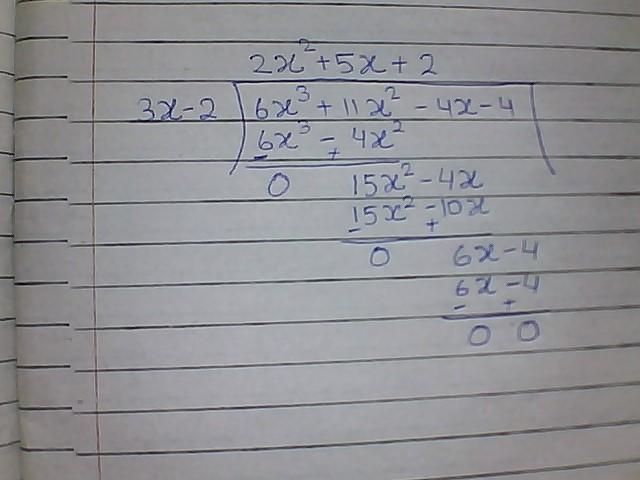 2x² + 5x + 2
3x - 2 ) 6x³ + 11x² - 4x - 4 (
6x³ - 4x²
- +
0 15x² - 4x
15x² - 10x
- +
0 6x - 4
6x - 4
- +
0 0